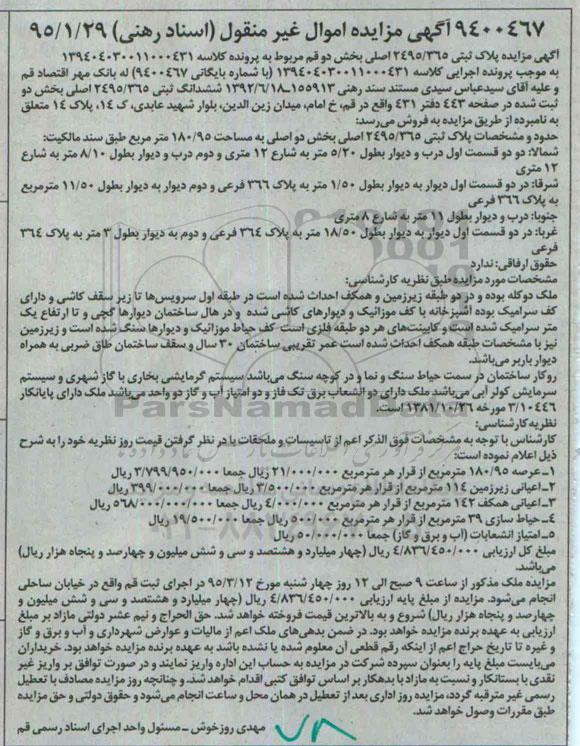 ۹۴۰۰۴۶۷ آگهی مزایده اموال غیر منقول (اسناد رهنی) ۹۵/۱/۲۹
آگهی مزایده پلاک ثبتی ۲۴۹۵/۳۶۵ اصلی بخش دو قم مربوط به پرونده کلاسه ۱۳۹۴۰۴۰۳۰۰۱۱۰۰۰۴۳۱
به موجب پرونده اجرایی کلاسه ۱۳۹۴۰۴۰۳۰۰۱۱۰۰۰۴۳۱ (با شماره بایگانی ۹۴۰۰۴۶۷) له بانک مهر اقتصاد قم
و علیه آقای سیدعباس سیدی مستند سند رهنی ۱۵۵۹۱۳ـ۱۳۹۲/۶/۱۸ ششدانگ ثبتی ۲۴۹۵/۳۶۵ اصلی بخش دو
ثبت شده در صفحه ۴۴۳ دفتر ۴۳۱ واقع در قم، خ امام، میدان زین الدین، بلوار شهید عابدی، ک ۱۴، پلاک ۱۴ متعلق
به نامبرده از طریق مزایده به فروش می‌رسد:
حدود و مشخصات پلاک ثبتی ۲۴۹۵/۳۶۵ اصلی بخش دو اصلی به مساحت ۱۸۰/۹۵ متر مربع طبق سند مالکیت:
شمالا: دو دو قسمت اول درب و دیوار بطول ۵/۲۰ متر به شارع ۱۲ متری و دوم درب و دیوار بطول ۸/۱۰ متر به شارع
۱۲ متری
شرقا: در دو قسمت اول دیوار به دیوار بطول ۱/۵۰ متر به پلاک ۳۶۶ فرعی و دوم دیوار به دیوار بطول ۱۱/۵۰ مترمربع
به پلاک ۳۶۶ فرعی
جنوبا: درب و دیوار بطول ۱۱ متر به شارع ۸ متری
غربا: در دو قسمت اول دیوار به دیوار بطول ۱۸/۵۰ متر به پلاک ۳۶۴ فرعی و دوم به دیوار بطول ۳ متر به پلاک ۳۶۴
فرعی
حقوق ارفاقی: ندارد
مشخصات مورد مزایده طبق نظریه کارشناسی:
ملک دوکله بوده و در دو طبقه زیرزمین و همکف احداث شده است در طبقه اول سرویس‌ها تا زیر سقف کاشی و دارای
کف سرامیک بوده آشپزخانه با کف موزائیک و دیوارهای کاشی شده و در هال ساختمان دیوارها گچی و تا ارتفاع یک
متر سرامیک شده است و کابینت‌های هر دو طبقه فلزی است کف حیاط موزائیک و دیوارها سنگ شده است و زیرزمین
نیز با مشخصات طبقه همکف احداث شده است عمر تقریبی ساختمان ۳۰ سال و سقف ساختمان طاق ضربی به همراه
دیوار باربر می‌باشد.
روکار ساختمان در سمت حیاط سنگ و نما و در کوچه سنگ می‌باشد سیستم گرمایشی بخاری با گاز شهری و سیستم
سرمایش کولر آبی می‌باشد ملک دارای دو انشعاب برق تک فاز و دو امتیاز آب و گاز دو واحد می‌باشد ملک دارای پایانکار
۳/۱۰۴۴۶ مورخه ۱۳۸۱/۱۰/۲۶ است.
نظریه کارشناسی:
کارشناس با توجه به مشخصات فوق الذکر اعم از تاسیسات و ملحقات با در نظر گرفتن قیمت روز نظریه خود را به شرح
ذیل اعلام نموده است:
۱ـ عرصه ۱۸۰/۹۵ مترمربع از قرار هر مترمربع ۲۱/۰۰۰/۰۰۰ ریال جمعا ۳/۷۹۹/۹۵۰/۰۰۰ ریال
۲ـ اعیانی زیرزمین ۱۱۴ مترمربع از قرار هر مترمربع ۳/۵۰۰/۰۰۰ ریال جمعا ۳۹۹/۰۰۰/۰۰۰ ریال
۳ـ اعیانی همکف ۱۴۲ مترمربع از قرار هر مترمربع ۴/۰۰۰/۰۰۰ ریال جمعا ۵۶۸/۰۰۰/۰۰۰ ریال
۴ـ حیاط سازی ۳۹ مترمربع از قرار هر مترمربع ۵۰۰/۰۰۰ ریال جمعا ۱۹/۵۰۰/۰۰۰ ریال
۵ـ امتیاز انشعابات (آب و برق و گاز) جمعا ۵۰/۰۰۰/۰۰۰ ریال
مبلغ کل ارزیابی ۴/۸۳۶/۴۵۰/۰۰۰ ریال (چهار میلیارد و هشتصد و سی و شش میلیون و چهارصد و پنجاه هزار ریال)
می‌باشد.
مزایده ملک مذکور از ساعت ۹ صبح الی ۱۲ روز چهار شنبه مورخ ۹۵/۳/۱۲ در اجرای ثبت قم واقع در خیابان ساحلی
انجام می‌شود. مزایده از مبلغ پایه ارزیابی ۴/۸۳۶/۴۵۰/۰۰۰ ریال (چهار میلیارد و هشتصد و سی و شش میلیون و
چهارصد و پنجاه هزار ریال) شروع و به بالاترین قیمت فروخته خواهد شد. حق الحراج و نیم عشر دولتی مازاد بر مبلغ
ارزیابی به عهده برنده مزایده خواهد بود. در ضمن بدهی‌های ملک اعم از مالیات و عوارض شهرداری و آب و برق و گاز
و غیره تا تاریخ حراج اعم از اینکه رقم قطعی آن معلوم شده یا نشده باشد به عهده برنده مزایده خواهد بود. خریداران
می‌بایست مبلغ پایه را بعنوان سپرده شرکت در مزایده به حساب این اداره واریز نمایند و در صورت توافق بر واریز غیر
نقدی با بستانکار و نسبت به مازاد با بدهکار بر اساس توافق کتبی اقدام خواهد شد. و چنانچه روز مزایده مصادف با تعطیل
رسمی غیر مترقبه گردد، مزایده روز اداری بعد از تعطیل در همان محل و ساعت انجام می‌شود و حقوق دولتی و حق مزایده
طبق مقررات وصول خواهد شد.
مهدی روزخوش ـ مسئول واحد اجرای اسناد رسمی قم
۷۸
ParsNamadData